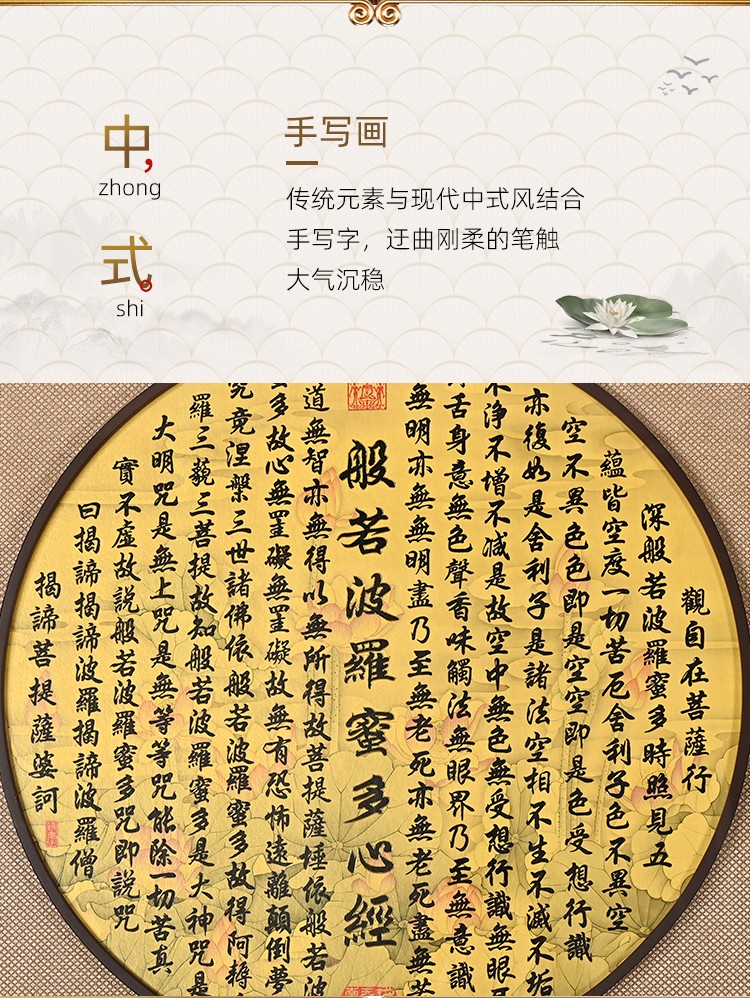 中,
zhong
式。
shi
手写画
传统元素与现代中式风结合
手写字，迂曲刚柔的笔触
大气沉稳
觀自在菩薩行
深般若波羅蜜多時照見五
蘊皆空度一切苦厄舍利子色不異空
空不異色色即是空空即是色受想行識
亦復如是舍利子是諸法空相不生不滅不垢
不淨不增不減是故空中無色無受想行識無眼
舌身意無色聲香味觸法無眼界乃至無意識
無明亦無無明盡乃至無老死亦無老死盡無
般若波羅蜜多心經
道無智亦無得以無所得故菩提薩埵依般若波
多故心無罣礙無罣礙故無有恐怖遠離顛倒夢
究竟涅槃三世諸佛依般若波羅蜜多故得阿耨
羅三藐三菩提故知般若波羅蜜多是大神咒是
大明咒是無上咒是無等等咒能除一切苦真
實不虛故說般若波羅蜜多咒即說咒
曰揭諦揭諦波羅揭諦波羅僧
揭諦菩提薩婆訶